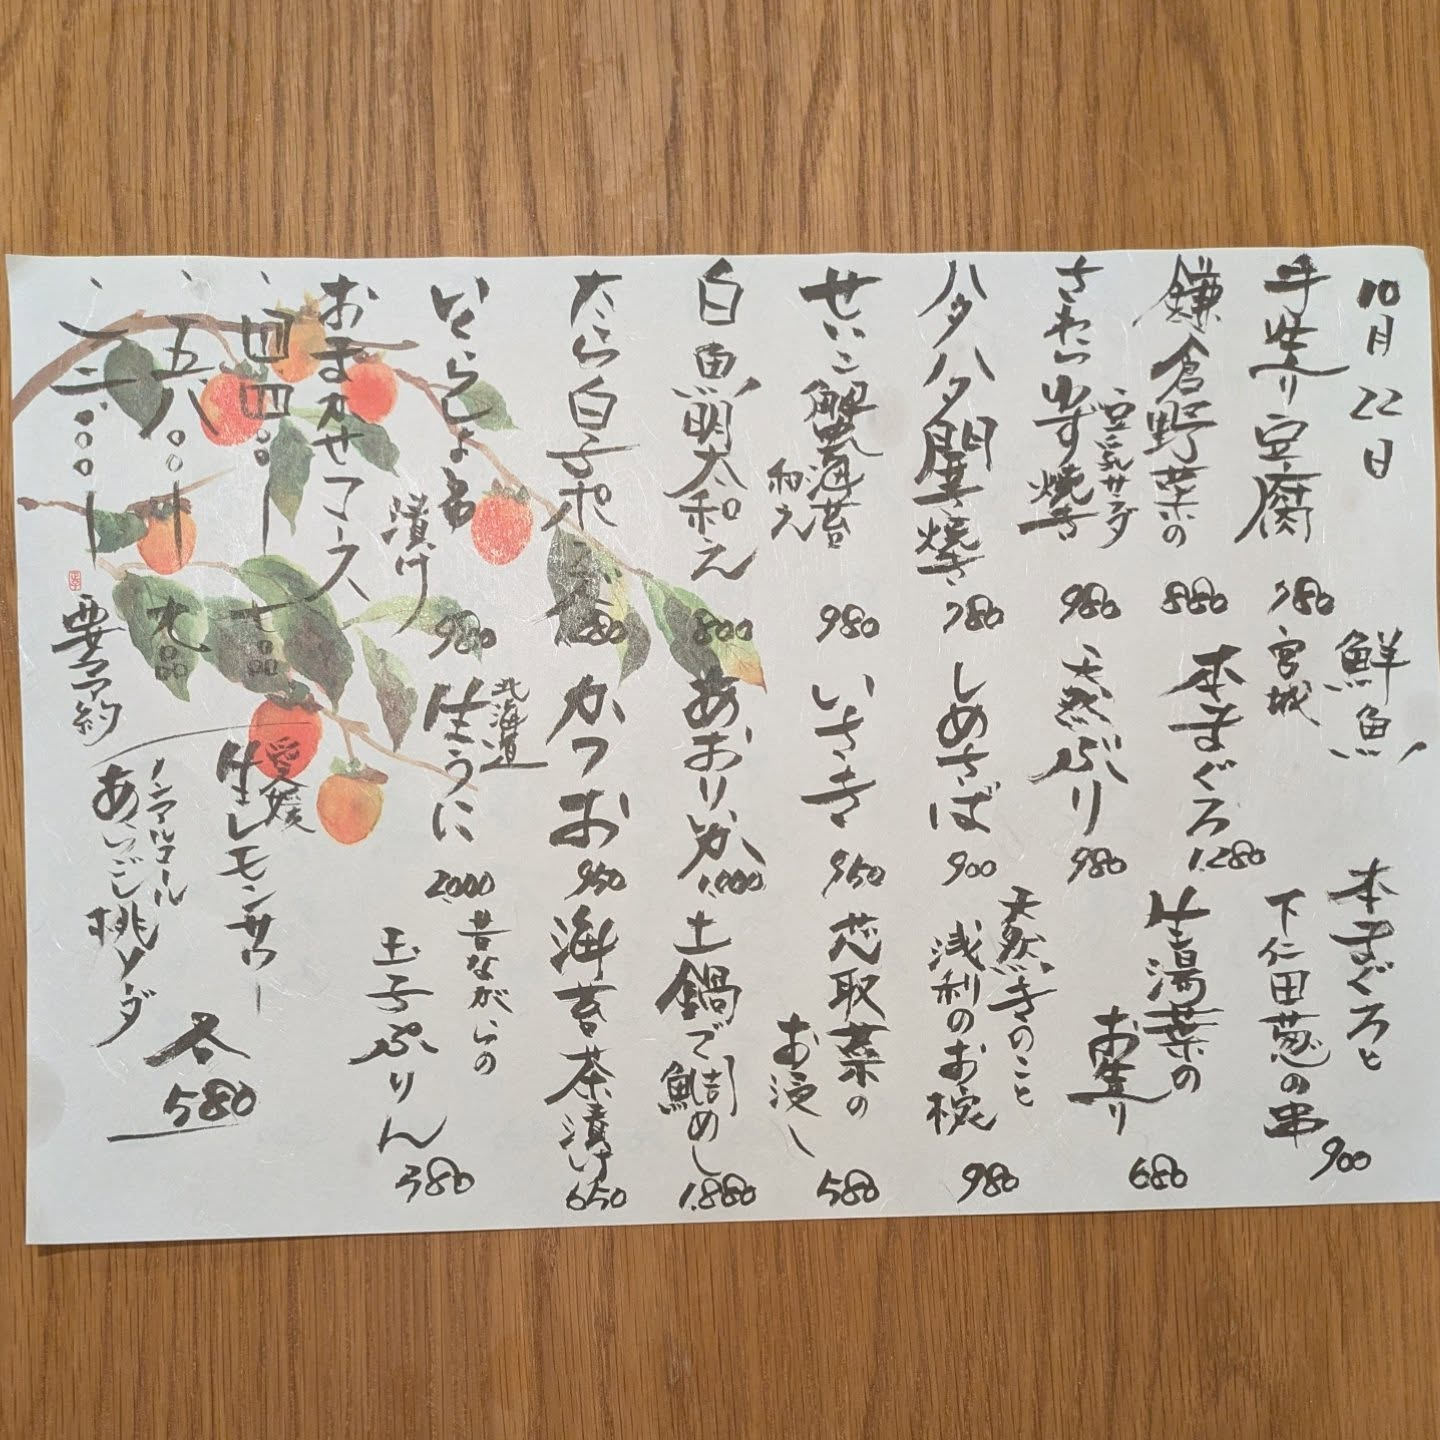 10月22日
手造り豆腐 780
鎌倉野菜の
豆乳サラダ 880
さわら ゆず焼き 980
ハタハタ開き焼き 780
せいこ蟹 海苔
和え 980
白魚明太和え 800
たら白子ポン酢 1,280
いくらしょう油
漬け 980
おまかせコース
、四四〇〇ー
、五八〇〇ー
、七〇〇〇
、九〇〇〇
要予約
鮮魚
宮城
本まぐろ 1,280
天然ぶり 980
しめさば 900
いさき 950
あおりいか 1,000
かつお 950
北海道
生うに 2,000
本まぐろと
下仁田葱の串 900
生湯葉の
お造り 680
天然きのこと
浅利のお椀 980
芯取菜の
お浸し 580
土鍋で鯛めし 1,880
海苔茶漬け 650
昔ながらの
玉子ぷりん 380
愛媛
生レモンサワー
ノンアルコール
あらごし桃ソーダ
各580